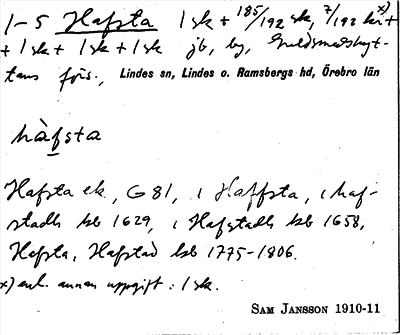 1-5 Hafsta 1 sk + 185/192 sk, 7/192 kr x) +
+ 1 sk + 1 sk + 1 sk jb, by, Guldsmedshyt-
tans förs., Lindes sn, Lindes o. Ramsbergs hd, Örebro län
hàfsta
Hafsta ek, G 81, i Haffsta, i haf-
stadh kb 1629, i Hafstadh kb 1658,
Hafsta, Hafstad hsb 1775-1806.
x) enl. annan uppgift: 1 sk.
SAM JANSSON 1910-11